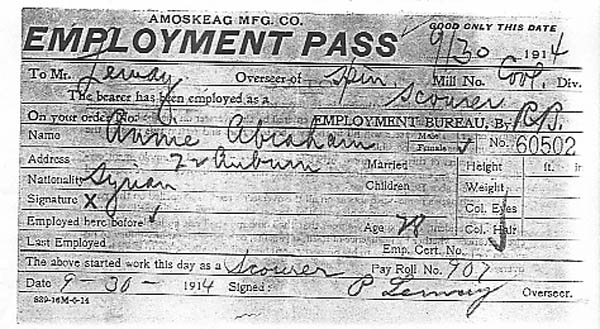 AMOSKEAG MFG. CO.
EMPLOYMENT PASS
GOOD ONLY THIS DATE
9/30 1914
To Mr. Lemay Overseer of Spin. Mill No. Cool. Div.
The bearer has been employed as a Scourer
On your order No. EMPLOYMENT BUREAU, By R.B.
Name Annie Abraham Male Female ✓ No. 60502
Address 72 Auburn Married Height ft. in
Nationality Syrian Children Weight
Signature X Col. Eyes
Employed here before ✓ Age 28 Col. Hair
Last Employed Emp. Cert. No.
The above started work this day as a Scourer Pay Roll No. 907
Date 9-30- 1914 Signed: P Lemay Overseer.
839-16M-6-14